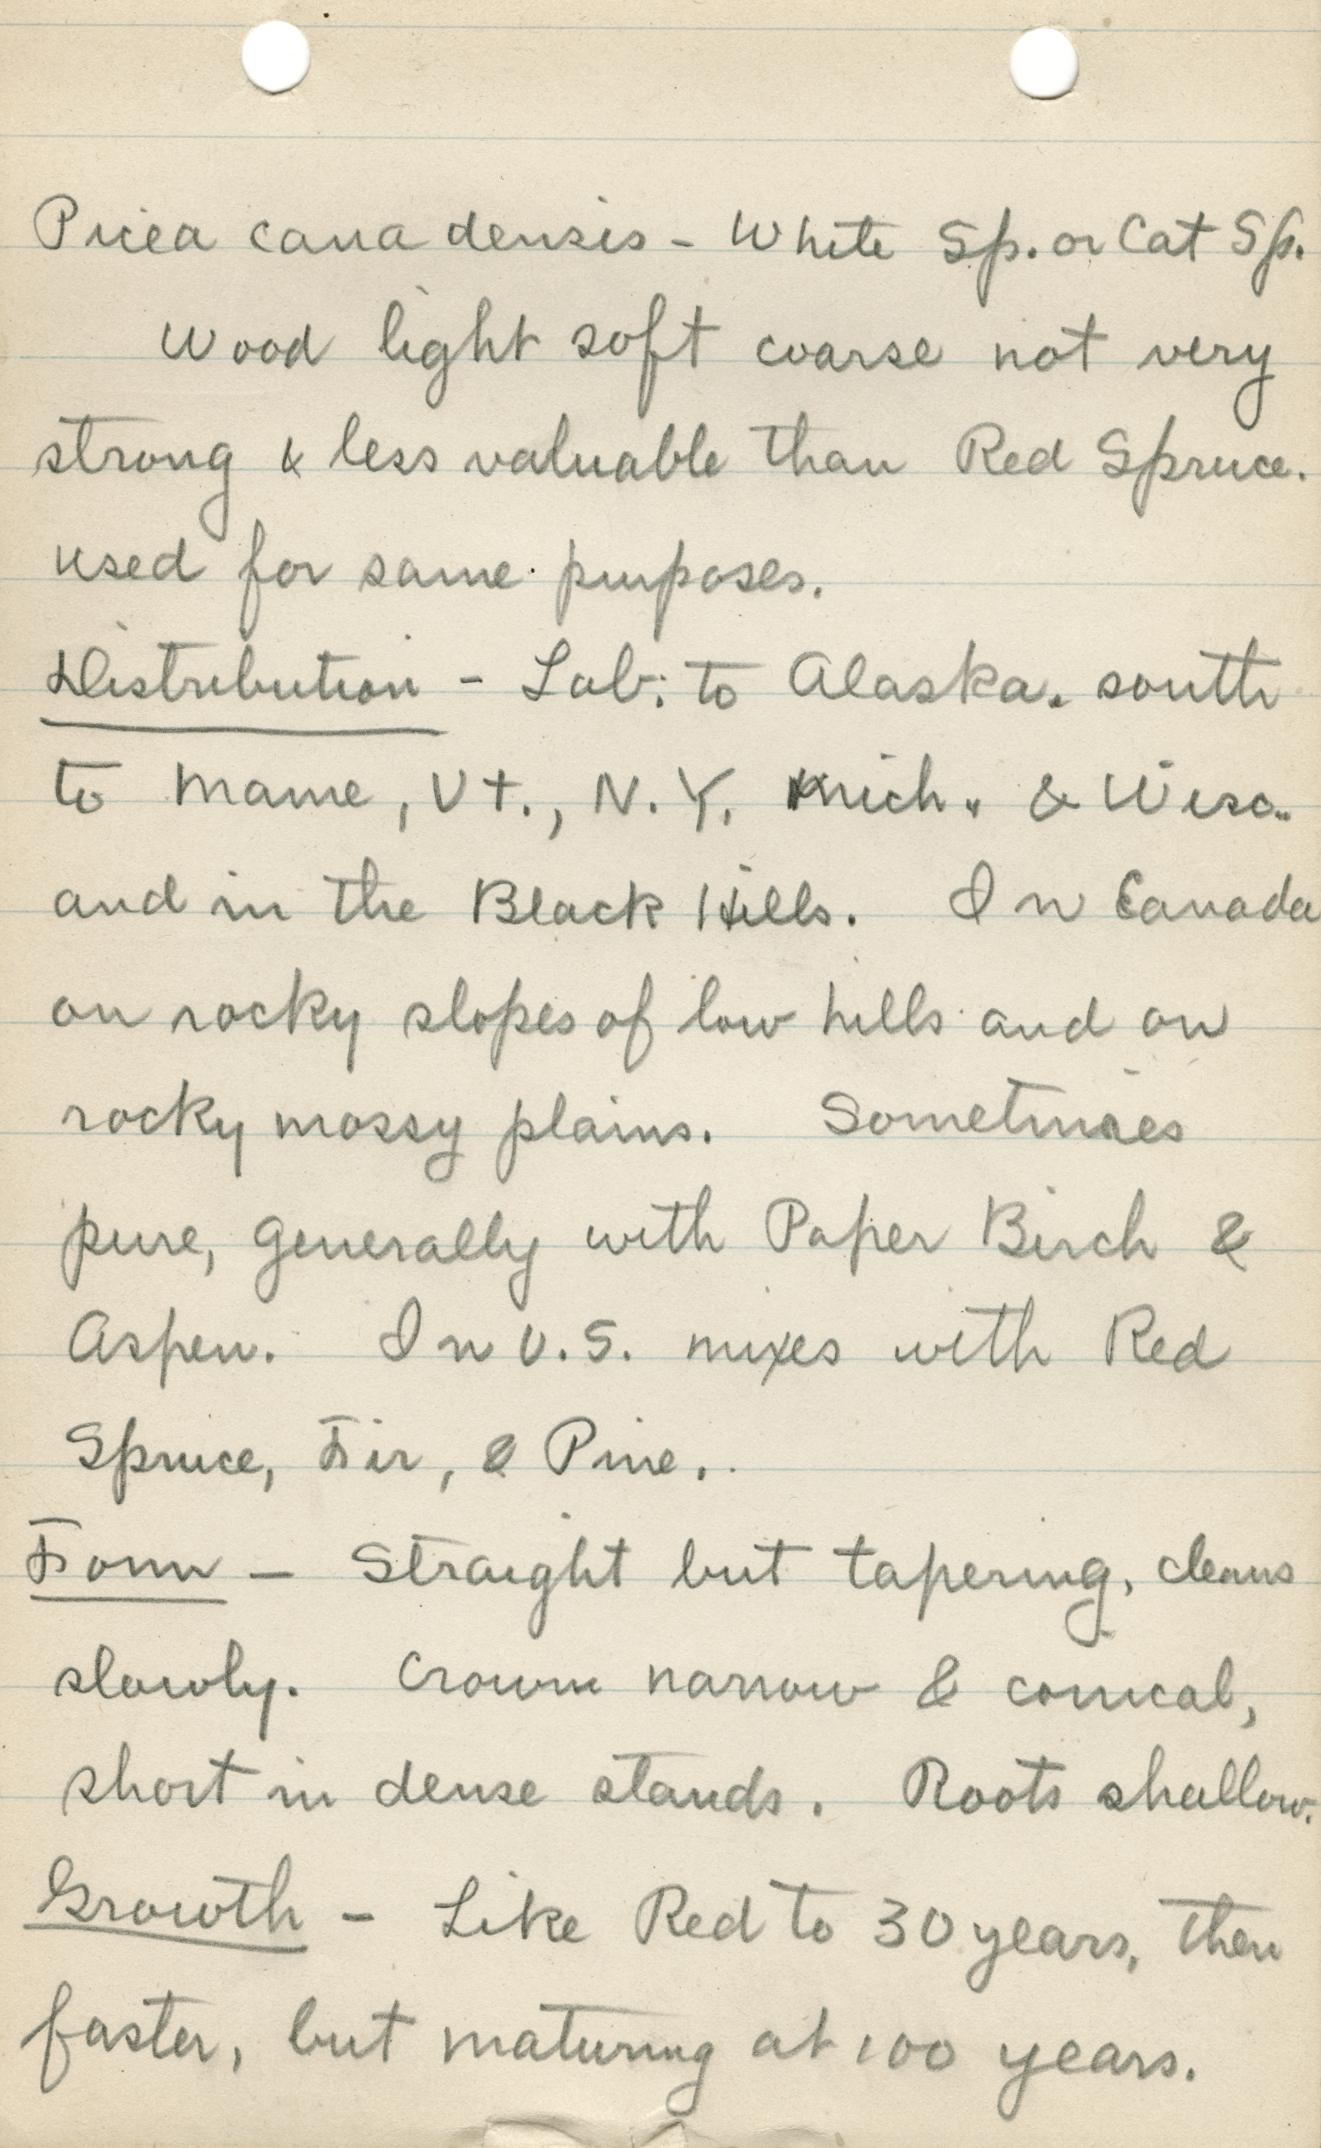 Picea canadensis - White Sp. or Cat Sp.
Wood light soft coarse not very
strong & less valuable than Red Spruce.
used for same purposes.
Distribution - Lab. to Alaska. south
to Maine, Vt., N.Y. Mich. & Wisc.
and in the Black Hills. In Canada
on rocky slopes of low hills and on
rocky mossy plains. Sometimes
pure, generally with Paper Birch &
Aspen. In U.S. mixes with Red
Spruce, Fir, & Pine.
Form - Straight but tapering, cleans
slowly. Crown narrow & conical,
short in dense stands. Roots shallow.
Growth - Like Red to 30 years, then
faster, but maturing at 100 years.